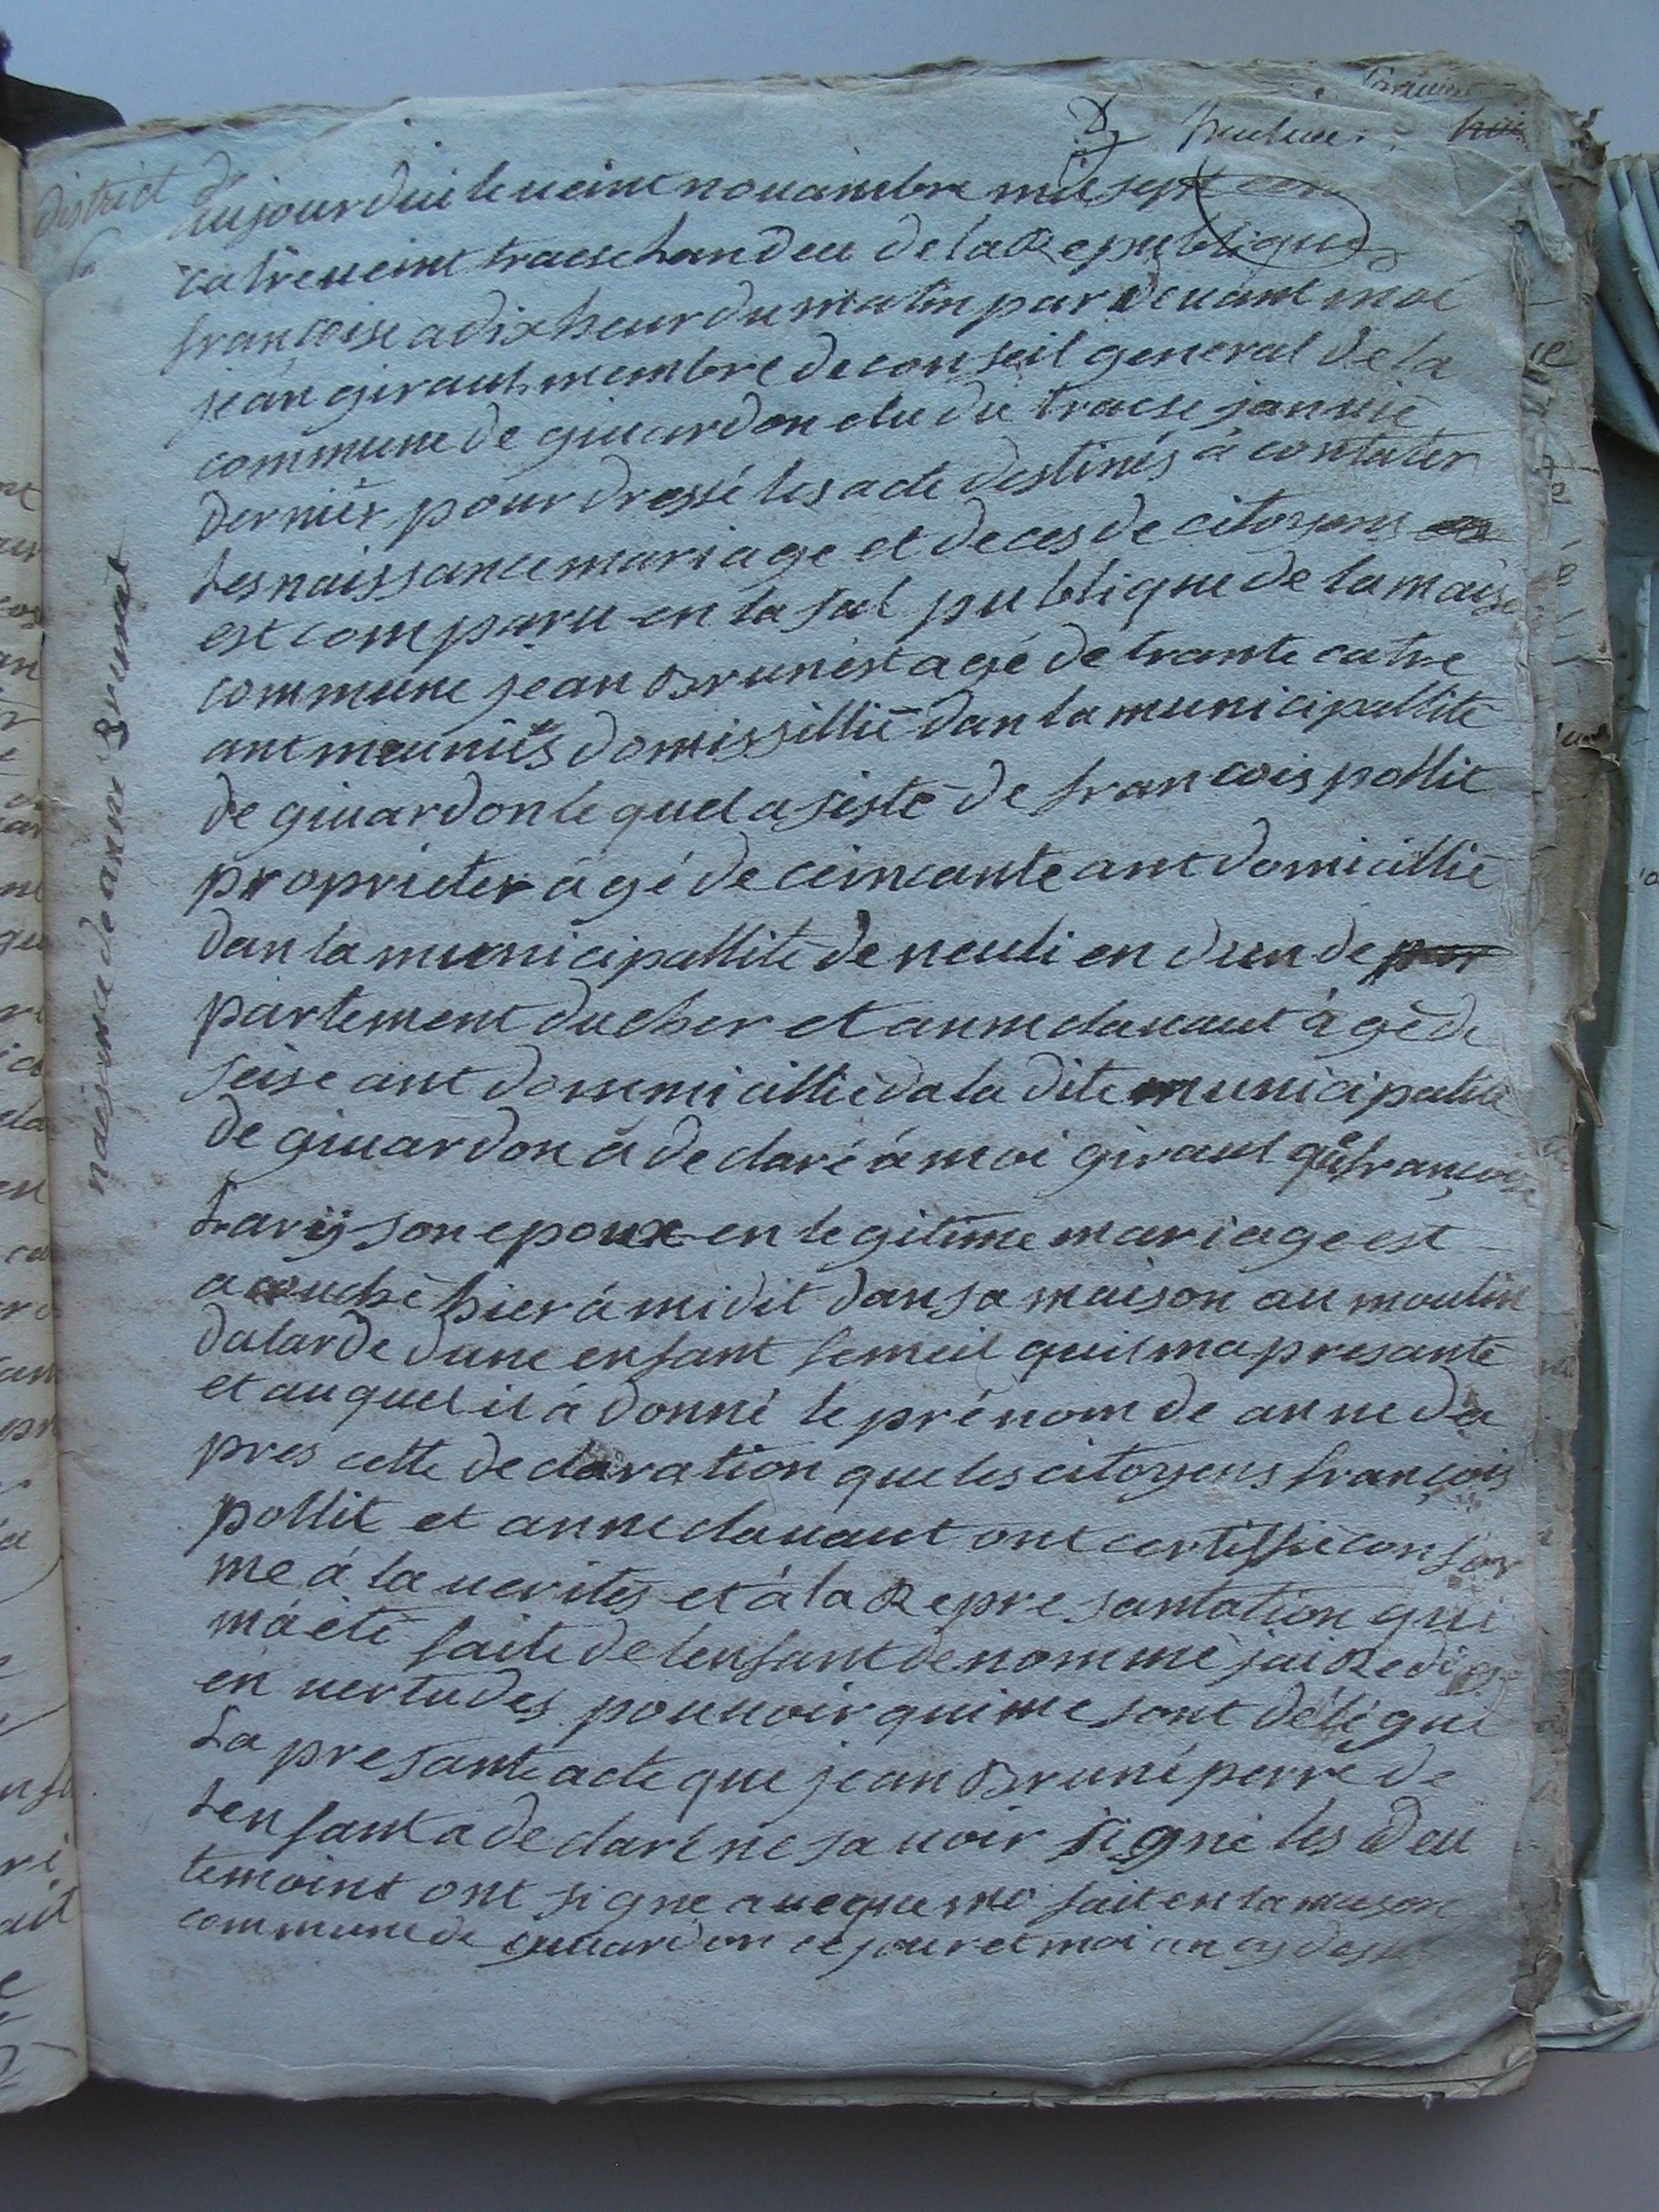 district de
aujourdui le veint nouambre mil sept cen
catre veint traese lan deu de la Republique
françoise a dix heur du matin par devant moi
jean giraut membre de conseil general de la
commune de givardon elu du traese janvié
dernier pour dressé les acte destinés à contater
les naissance mariage et deces de citoyens
est comparu en la sal publique de la maiso
commune jean Brunest agé de trante catre
ant meuniés domissillié dan la municipallité
de givardon le quel asisté de francois pollit
proprieter agé de cimcante ant domicillié
dan la municipallité de neuli en dun de par
partement du cher et anne clavaut àgé de
seise ant dommicillié da la dite municipalité
de givardon à declaré à moi giraut que françoise
Lary son epouxe en legitime mariage est
acouché hier à midit dans sa maison au moulin
dalarde dune enfant femeil quil ma presanté
et auquel il à donné le prénom de anne da
pres cette declaration que les citoyens françois
pollit et anne clavaut ont certiffié confor
me à la verités et à la Represantation qui
mà été faite de lenfant denommé jai Redigé
en vertu des pouvoir qui me sont délégué
La presante acte que jean Bruné perre de
Lenfant a declaré ne savoir signé les deu
temoint ont signé aveque moi fait en la maison
commune de givardon ce jour et moi an cy desu
naissance de anne Brunest